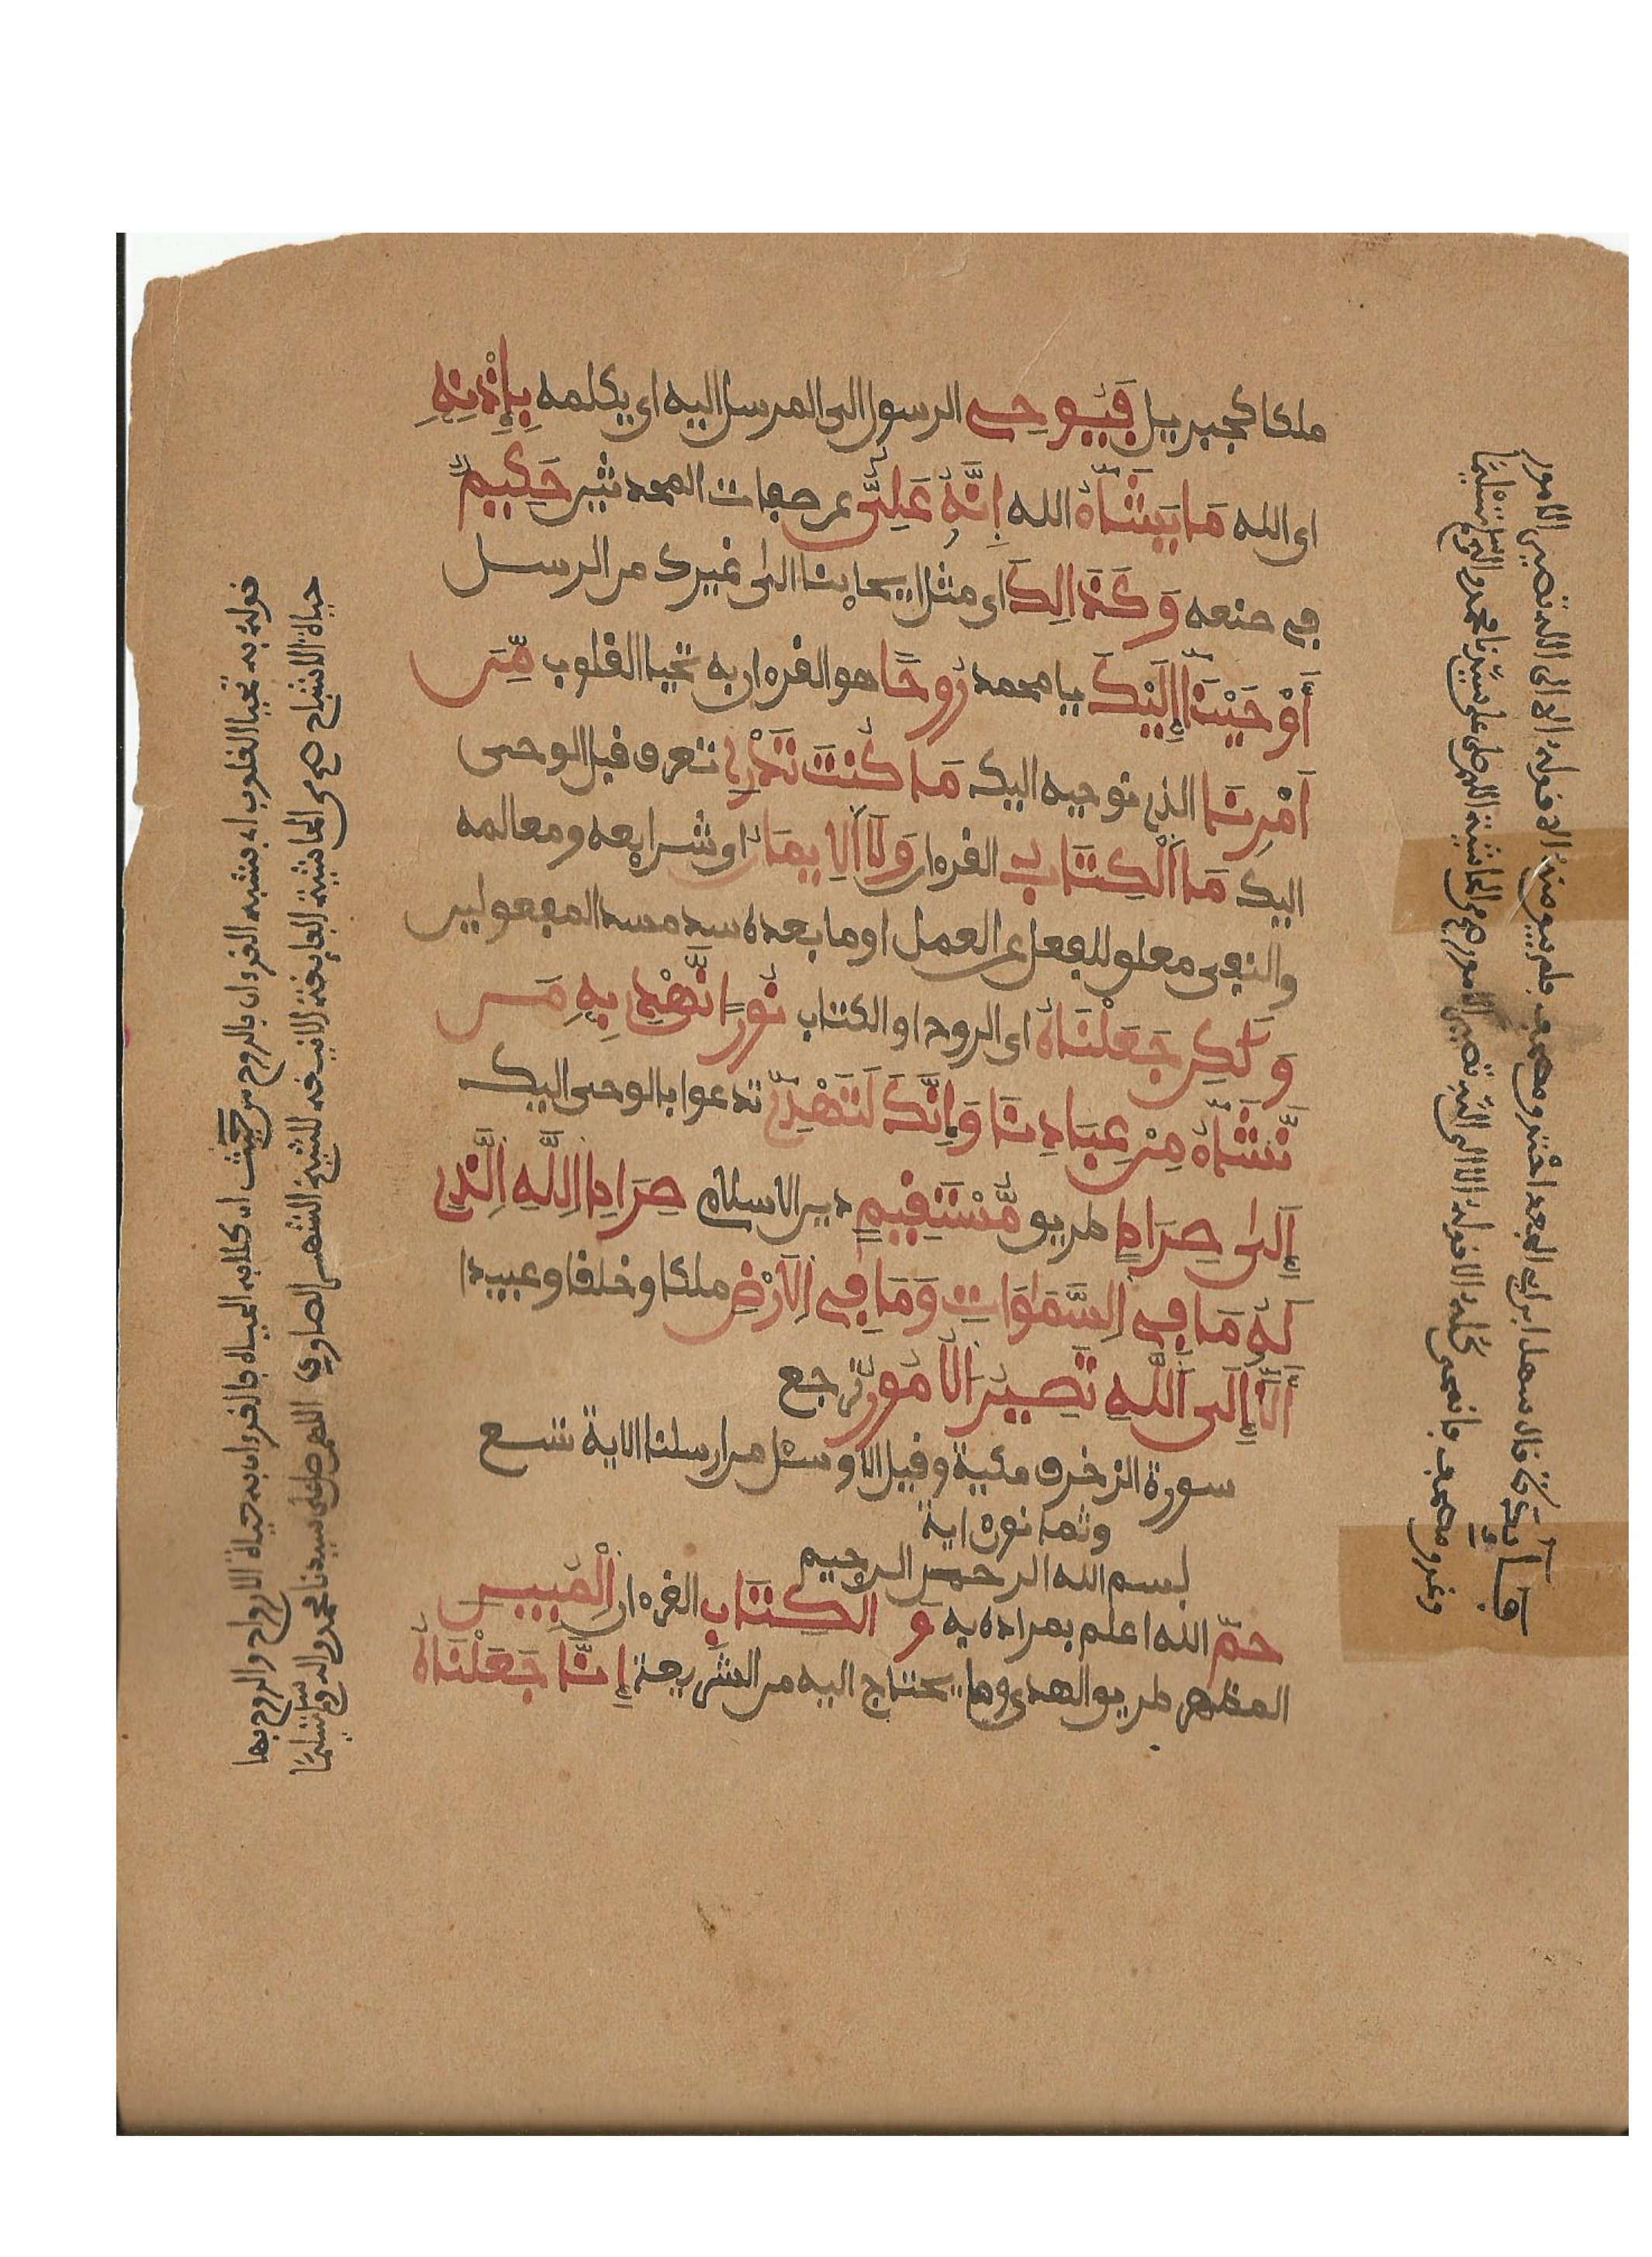 ملكا كجبريل فَيُوحِىَ الرسول الى المرسل اليه اى يكلمه بِإِذْنِهِ
اى الله مَا يَشَآءُ الله إِنَّهُ عَلِىٌّ عن صفات المحدثين حَكِيمٌ
في صنعه وَكَذَالِكَ اى مثل ايحاينا الى غيرك من الرسل
أَوْحَيْنَآ إِلَيْكَ يا محمد رُوحًا هو القرءان به تحيا القلوب مِّنَ
اَمْرِنَا الذي نوحيه اليك مَا كُنتَ تَدْرِي تعرف قبل الوحى
اليك مَا اَلْكِتَابُ القرءان وَلَا اَلِايمَانُ اى شرايعه ومعالمه
والنفي معلق للفعل عن العمل او ما بعده سد مسد المفعولين
وَلَكِن جَعَلْنَاهُ اى الروح او الكتاب نُورًا نَّهْدِي بِهِ مَن
نَّشَآءُ مِنْ عِبَادِنَا وَإِنَّكَ لَتَهْدِي تدعوا بالوحى اليك
إِلَى صِرَاطٍ طريق مُّسْتَقِيمٍ دين الاسلام صِرَاطِ اِللَّهِ اِلَّذِي
لَهُ مَا فِي اِلسَّمَاوَاتِ وَمَا فِي اِلَارْضِ ملكا وخلقا وعبيدا
أَلَآ إِلَى اَللَّهِ تَصِيرُ الُامُورُ ترجع
سورة الزخرف مكية وقيل الا وسئل من ارسلنا الاية تسع
وثمانون اية
بسم الله الرحمن الرحيم
حمٓ الله اعلم بمراده به وَ الْكِتَابِ القرءان الْمُبِينِ
المظهر طريق الهدى وما يحتاج اليه من الشريعة إِنَّا جَعَلْنَاهُ
قوله به تحيا القلوب اى بشبه القرءان بالروح من حيث ان كلا به الحياة فالقرءان به حياة الارواح والروح بها
حياة الاشباح صح من الحاشية الفايقة للشيخ الشهير الصاوي اللهم صل على سيدنا محمد وسلم تسليما
قال سهل ابن ابي الجعد احترق مصحف فلم يبق منه الا قوله الا الى الله تصير الامور
وغرق مصحف فانمحى كله الا قوله الا الى الله تصير الامور صح من الحاشية اللهم صل على سيدنا محمد وسلم تسليما